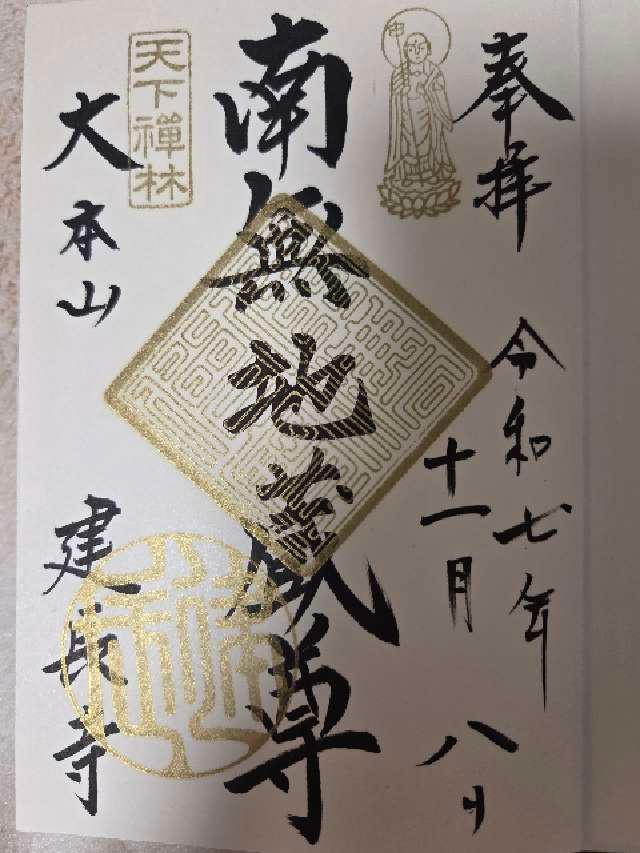 奉拝
令和七年
十一月
八日
南無地蔵尊
天下禅林
大本山
建長寺